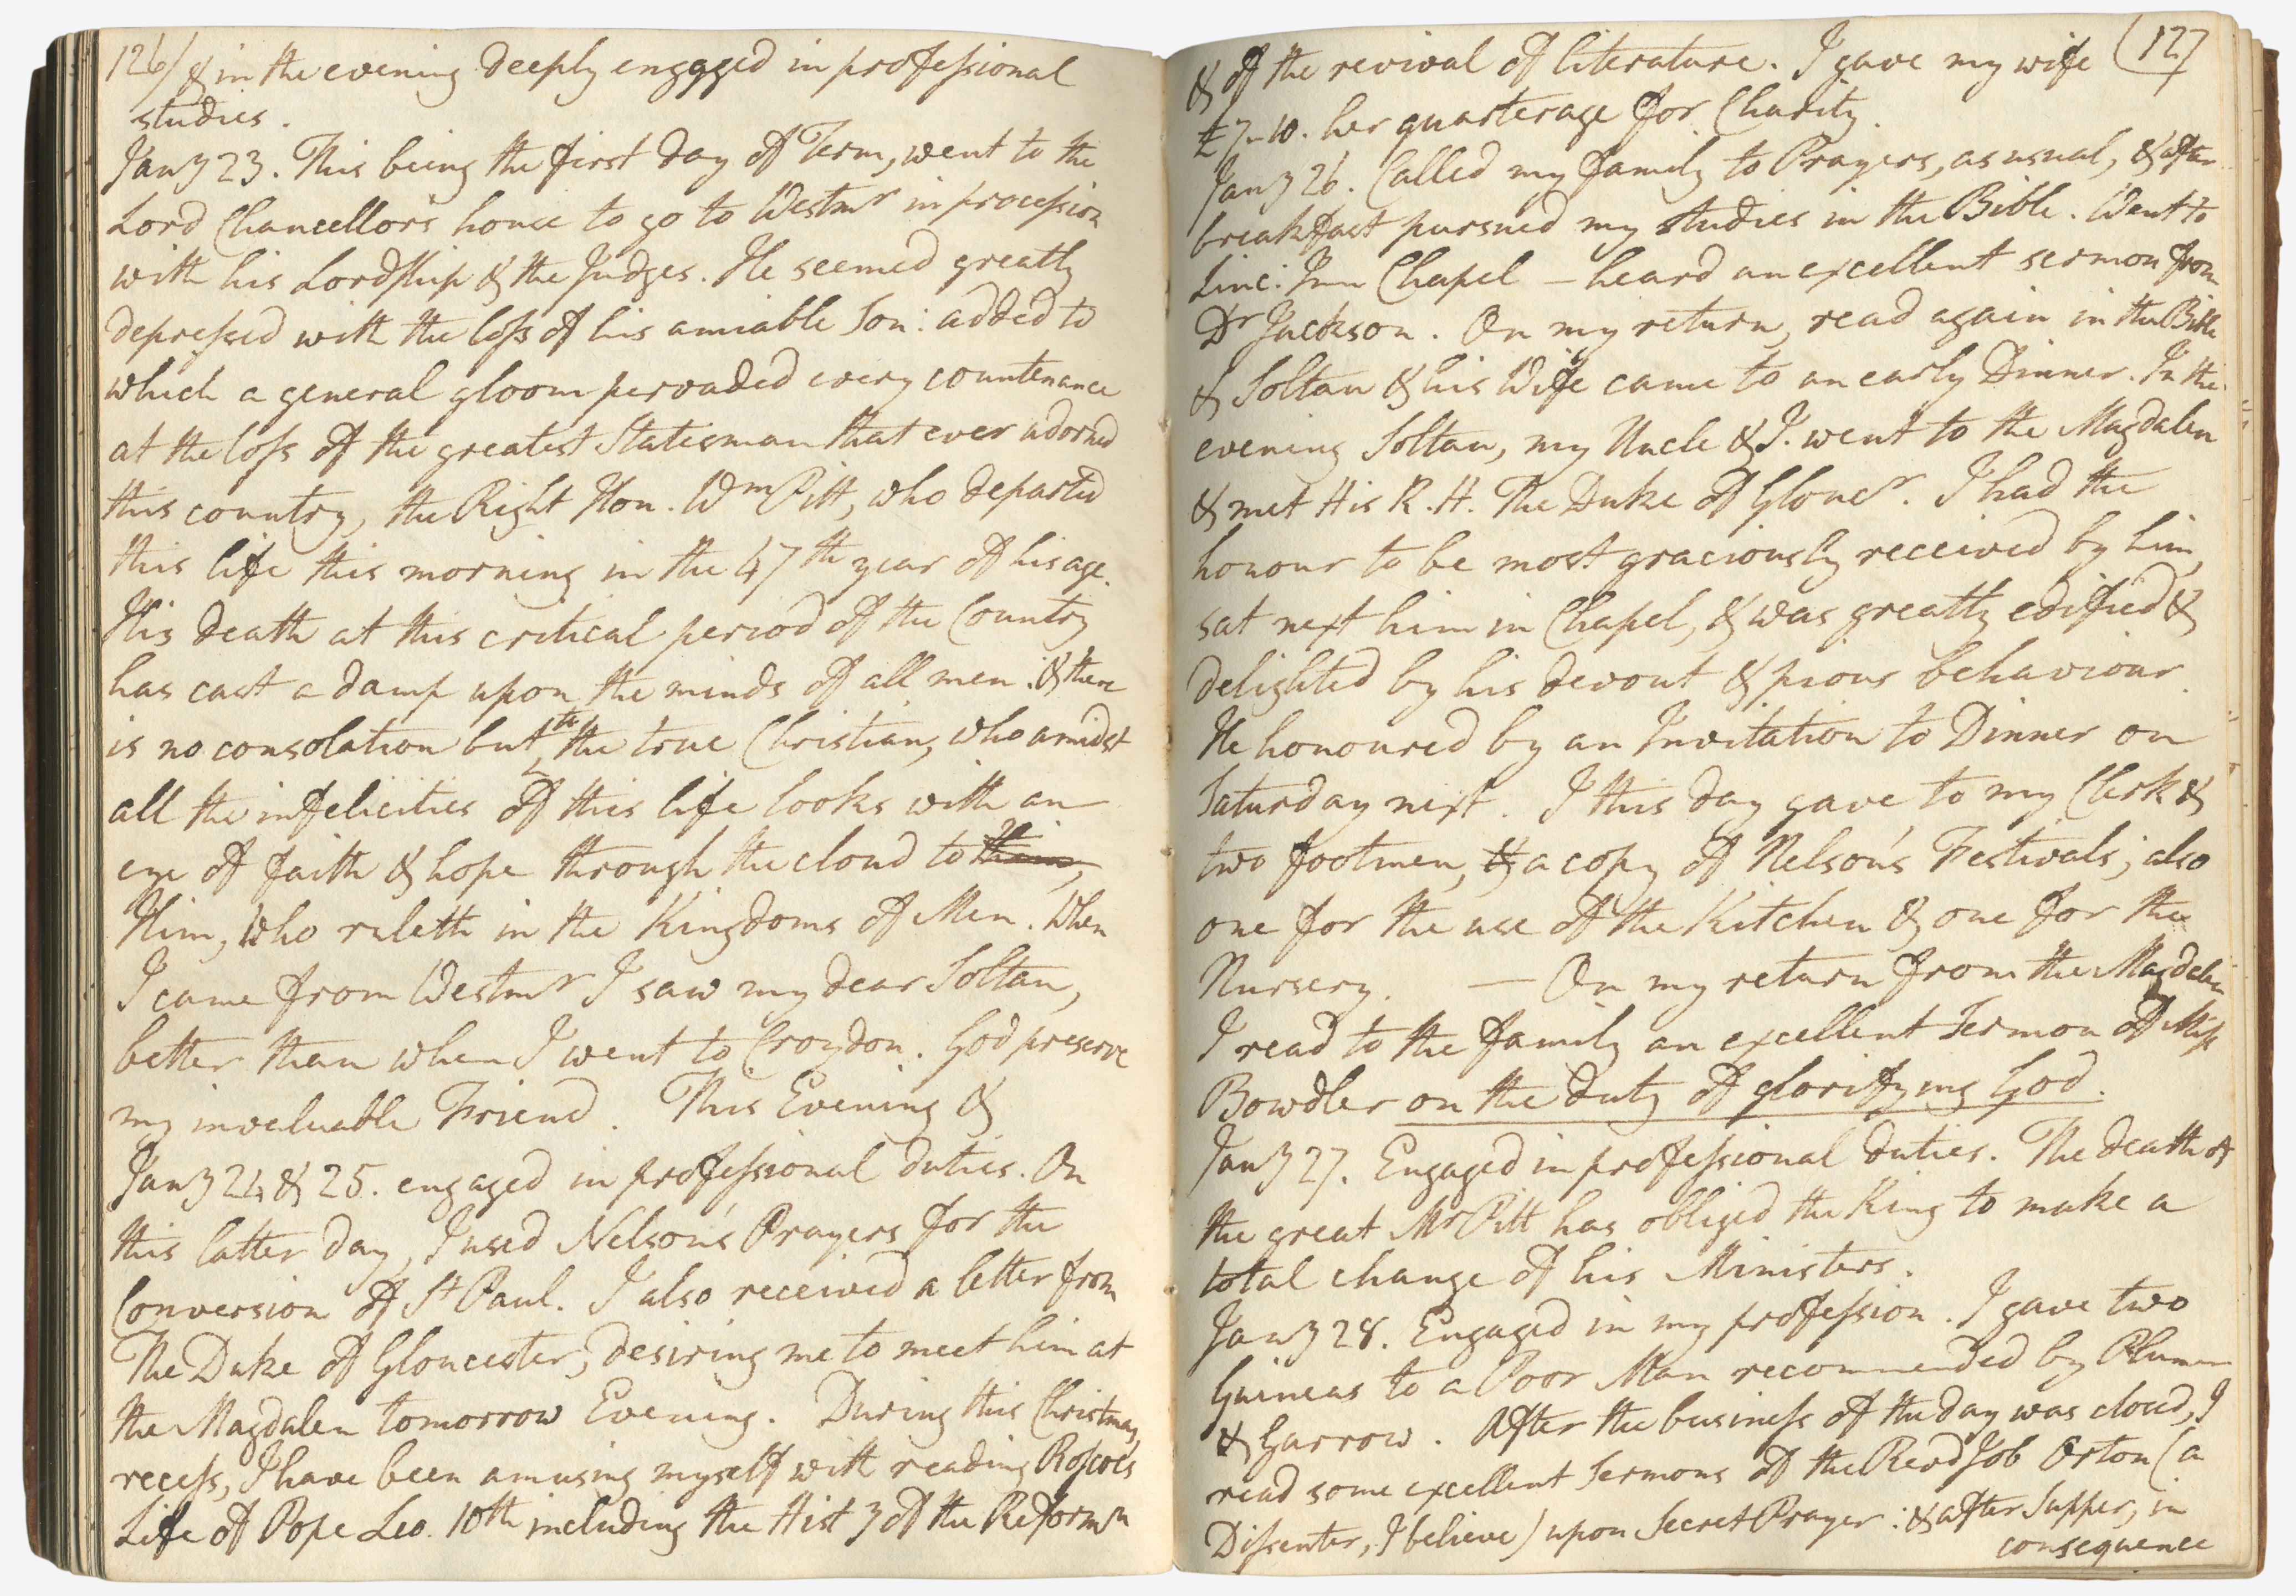 126/ & in the evening deeply engaged in professional
studies.
Jany 23. This being the first day of Term, went to the
Lord Chancellor's house to go to Westmr in procession
with his Lordship & the Judges. He seemed greatly
depressed with the loss of his amiable Son: added to
which a general gloom pervaded every countenance
at the loss of the greatest Statesman that ever adorned
this country, the Right Hon. Wm Pitt, who departed
this life this morning in the 47th year of his age.
His death at this critical period of the Country
has cast a damp upon the minds of all men: & there
is no consolation but to the true Christian, who amidst
all the infelicities of this life looks with an
eye of faith & hope through the cloud to
Him, who ruleth in the Kingdoms of Men. When
I came from Westmr I saw my dear Soltau,
better than when I went to Croydon. God preserve
my invaluable Friend. This Evening &
Jany 24 & 25. engaged in professional duties. On
this latter day, I used Nelson's Prayers for the
Conversion of St Paul. I also received a letter from
The Duke of Gloucester, desiring me to meet him at
the Magdalen tomorrow Evening. During this Christmas
recess, I have been amusing myself with reading Roscoe's
Life of Pope Leo. 10th including the Histy of the Reformn
(127
& of the revival of literature. I gave my wife
£7-10. her quarterage for Charity.
Jany 26. Called my family to Prayers, as usual, & after
breakfast pursued my studies in the Bible. Went to
Linc: Inn Chapel – heard an excellent sermon from
Dr Jackson. On my return, read again in the Bible
& Soltau & his Wife came to an early Dinner. In the
evening Soltau, my Uncle & I. went to the Magdalen
& met His R.H. The Duke of Glouc.r. I had the
honour to be most graciously received by him,
sat next him in Chapel, & was greatly edified &
delighted by his devout & pious behaviour.
He honoured by an Invitation to Dinner on
Saturday next. I this day gave to my Clerk &
two footmen, & a copy of Nelson's Festivals; also
one for the use of the Kitchen & one for the
Nursery. — On my return from the Magdalen
I read to the family an excellent Sermon of Miss
Bowdler on the duty of glorifying God.
Jany 27. Engaged in professional duties. The death of
the great Mr Pitt has obliged the King to make a
total change of his Ministers.
Jany 28. Engaged in my profession. I gave two
Guineas to a Poor Man recommended by Plumer
& Garrow. After the business of the day was closed, I
read some excellent Sermons of the Revd Job Orton (a
Dissenter, I believe) upon Secret Prayer: & after Supper, in
consequence